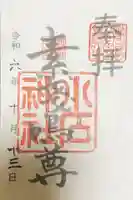 奉拝
素戔嗚尊
神社
令和六年十月十三日